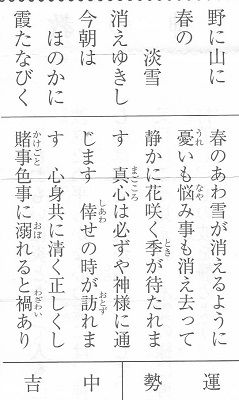 野に山に
春の　淡雪
消えゆきし
今朝は
ほのかに
霞たなびく
春のあわ雪が消えるように
憂いも悩み事も消え去って
静かに花咲く季が待たれま
す　真心は必ずや神様に通
じます　倖せの時が訪れま
す　心身共に清く正しくし
賭事色事に溺れると禍あり
運勢
中吉